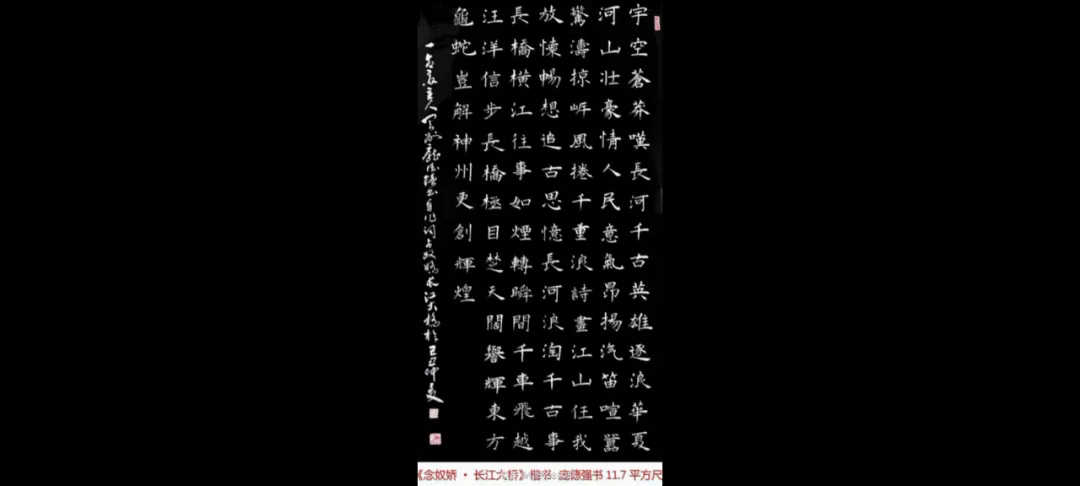 宇空蒼莽嘆長河千古英雄逐浪華夏
河山壯豪情人民意氣昂揚汽笛喧囂
驚濤掠岸風捲千重浪詩畫江山任我
放懷暢想追古思憶長河浪淘千古事
長橋橫江往事如煙轉瞬間千車飛越
汪洋信步長橋極目楚天闊譽輝東方
龜蛇豈解神州更創輝煌
《念奴娇 · 长江大桥》楷书 庞德强书 11.7 平方尺